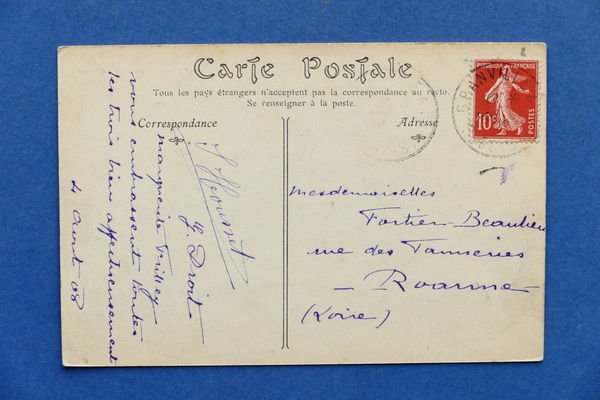 Carte Postale
Tous les pays étrangers n'acceptent pas la correspondance au recto.
Se renseigner à la poste.
Correspondance
Adresse
REPUBLIQUE FRANÇAISE
10c
POSTES
GRANVILLE
Mesdemoiselles
Fortier-Beaulieu
rue des Tanneries
- Roanne -
(Loire)
J Droit
Marguerite
vous embrassent toutes
les trois bien affectueusement
4 Août 08